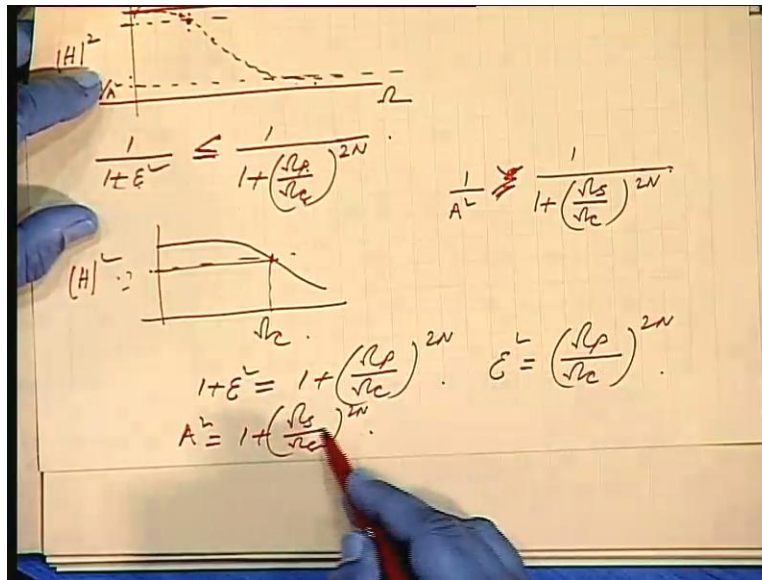 |H|²
1/A²
Ω
1/(1+ε²) ≤ 1/(1+(Ωp/Ωc)^2N) .
1/A² ≥ 1/(1+(Ωs/Ωc)^2N) .
|H|² :
Ωc .
1+ε² = 1+(Ωp/Ωc)^2N . ε² = (Ωp/Ωc)^2N .
A² = 1+(Ωs/Ωc)^2N .